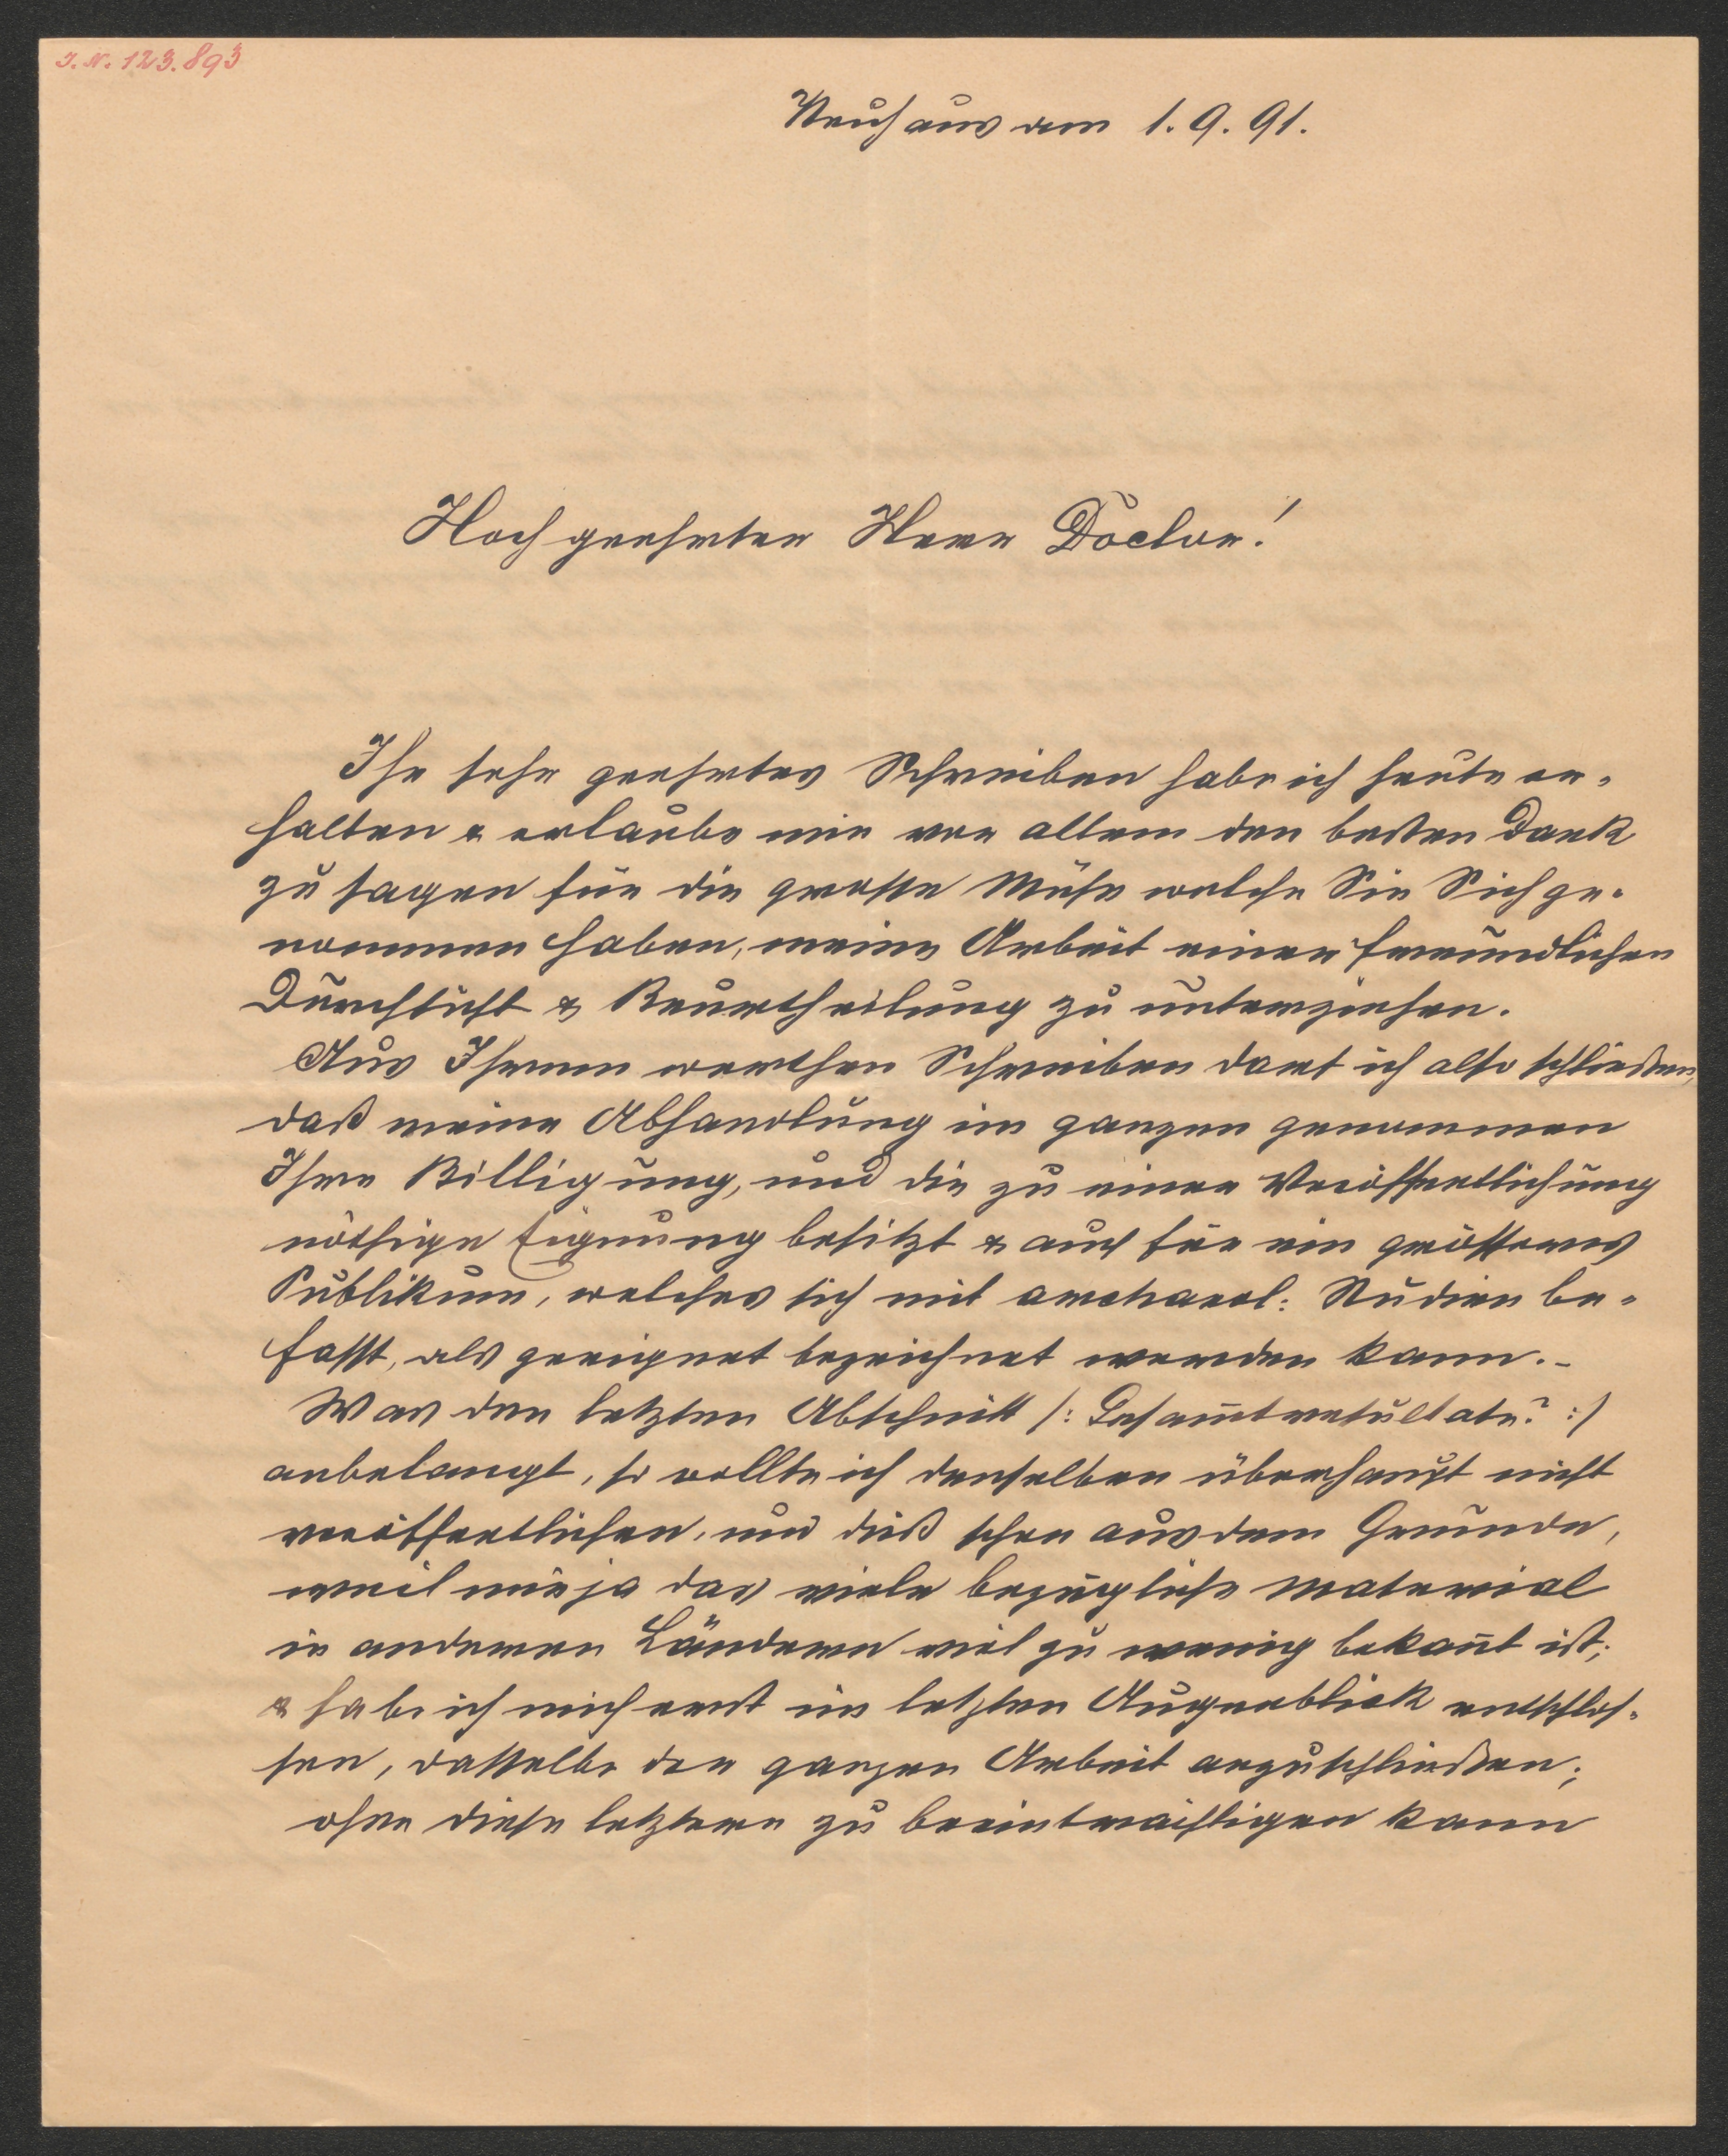 J. N. 123.893
Neuhaus am 1. 9. 91.
Hochgeehrter Herr Doctor!
Ihr sehr geehrtes Schreiben habe ich heute er-
halten & erlaube mir vor allem den besten Dank
zu sagen für die grosse Mühe welche Sie Sich ge-
nommen haben, meine Arbeit einer freundlichen
Durchsicht & Beurtheilung zu unterziehen.
Aus Ihrem werthen Schreiben darf ich also schließen,
daß meine Abhandlung im ganzen genommen
Ihre Billigung, und die zu einer Veröffentlichung
nöthige Eignung besitzt & auch für ein grösseres
Publikum, welches sich mit archaeol: Studien be-
fasst, als geeignet bezeichnet werden kann.-
Was den letzten Abschnitt /: Gesam̅tresultate? :/
anbelangt, so wollte ich denselben überhaupt nicht
veröffentlichen, und dieß schon aus dem Grunde,
weil mir ja das viele bezügliche Material
in anderen Ländern viel zu wenig bekan̅t ist;
& habe ich mich erst im letzten Augenblick entschlos-
sen, dasselbe der ganzen Arbeit anzuschließen;
ohne diese letztere zu beeinträchtigen kann